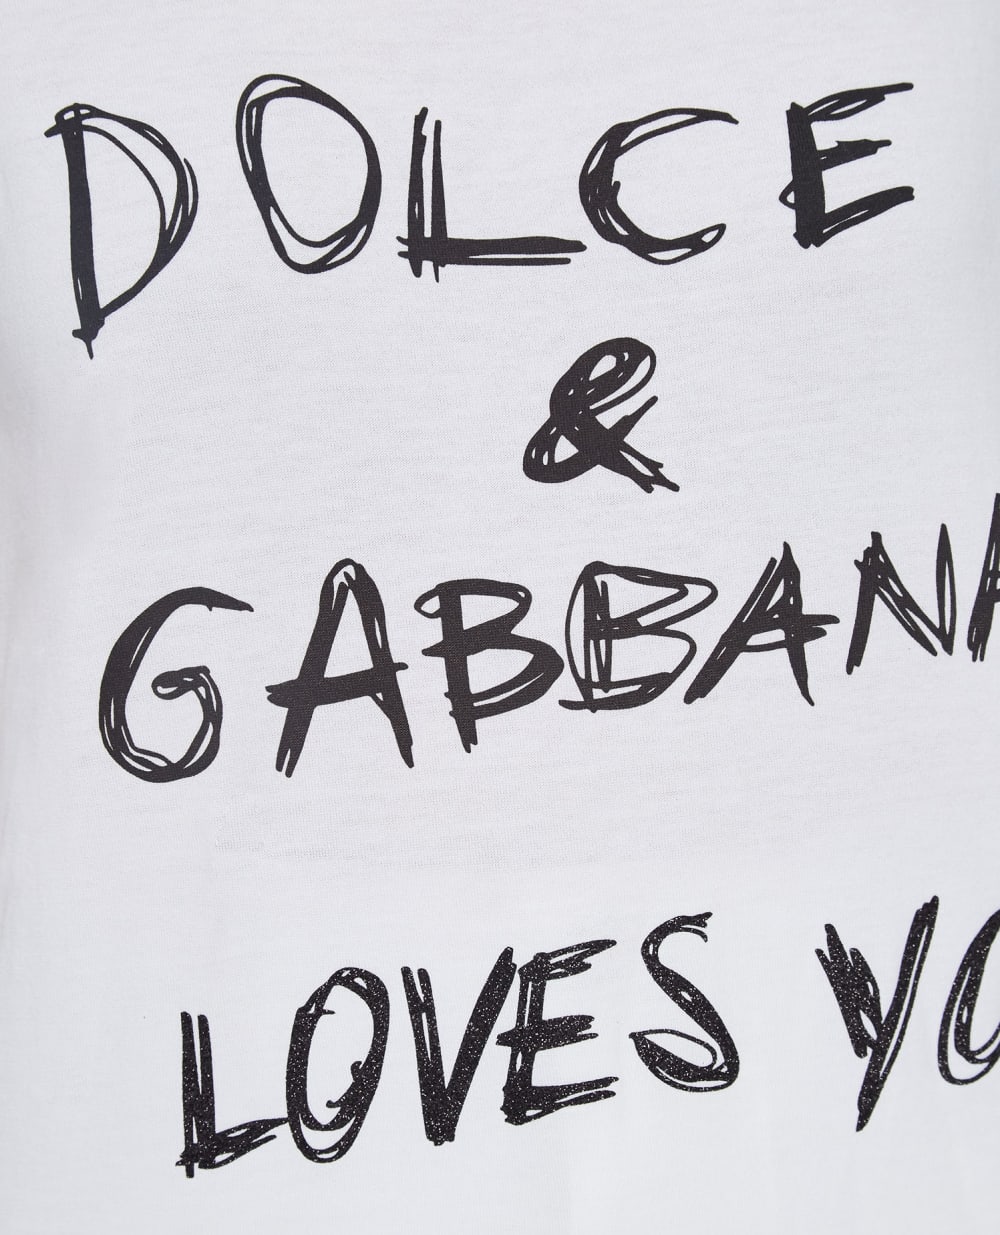 DOLCE
&
GABBANA
LOVES YO